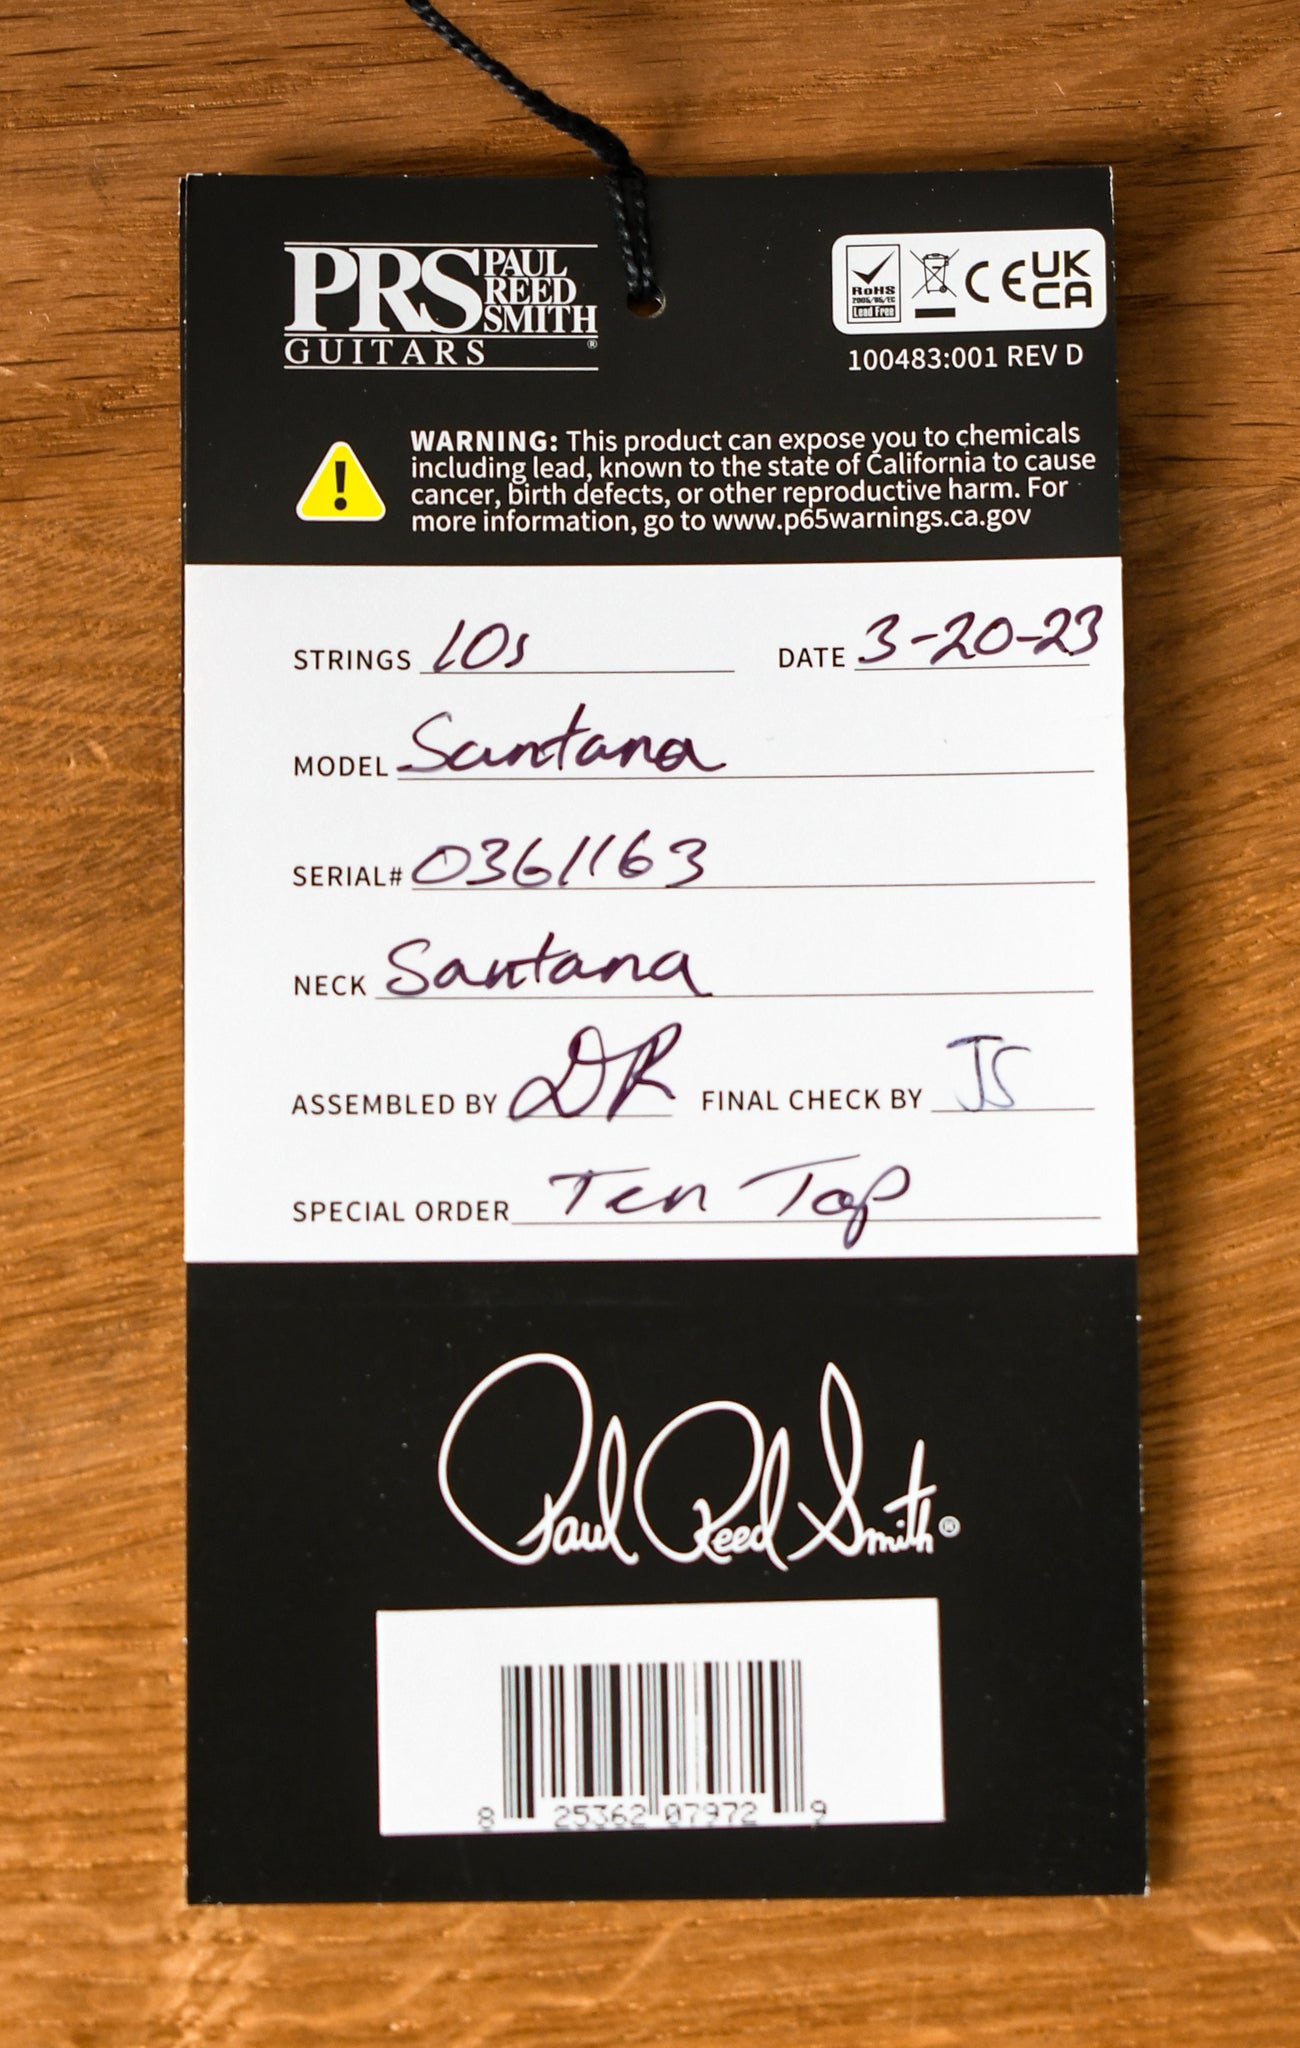 PRS PAUL REED SMITH
GUITARS ®
RoHS
2005/95/EC
Lead Free
CE UK CA
100483:001 REV D
WARNING: This product can expose you to chemicals
including lead, known to the state of California to cause
cancer, birth defects, or other reproductive harm. For
more information, go to www.p65warnings.ca.gov
STRINGS 10s DATE 3-20-23
MODEL Santana
SERIAL# 0361163
NECK Santana
ASSEMBLED BY DR FINAL CHECK BY JS
SPECIAL ORDER Ten Top
Paul Reed Smith ®
8 25362 07972 9